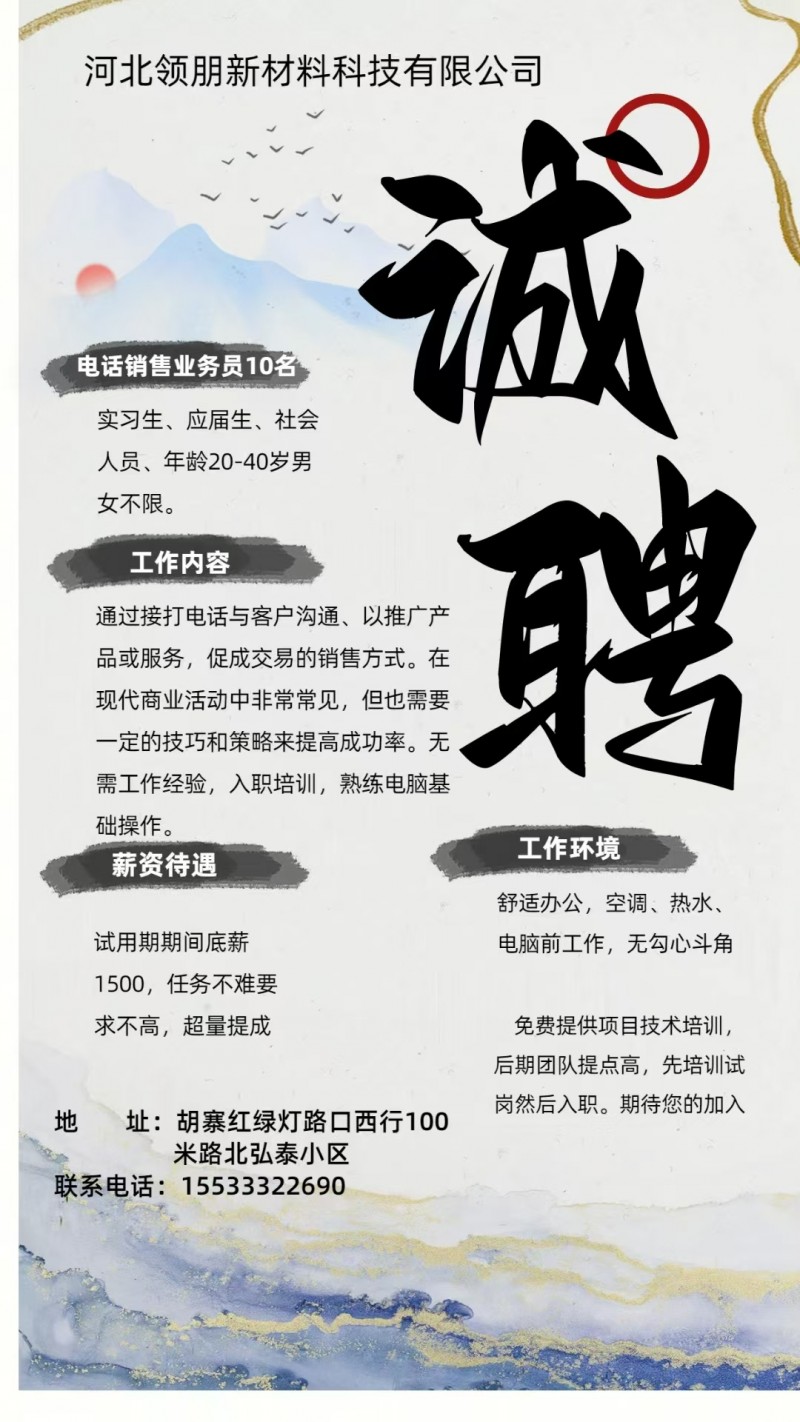 河北领朋新材料科技有限公司
诚
聘
电话销售业务员10名
实习生、应届生、社会
人员、年龄20-40岁男
女不限。
工作内容
通过接打电话与客户沟通、以推广产
品或服务，促成交易的销售方式。在
现代商业活动中非常常见，但也需要
一定的技巧和策略来提高成功率。无
需工作经验，入职培训，熟练电脑基
础操作。
薪资待遇
试用期期间底薪
1500，任务不难要
求不高，超量提成
工作环境
舒适办公，空调、热水、
电脑前工作，无勾心斗角
免费提供项目技术培训，
后期团队提点高，先培训试
岗然后入职。期待您的加入
地 址：胡寨红绿灯路口西行100
米路北弘泰小区
联系电话：15533322690